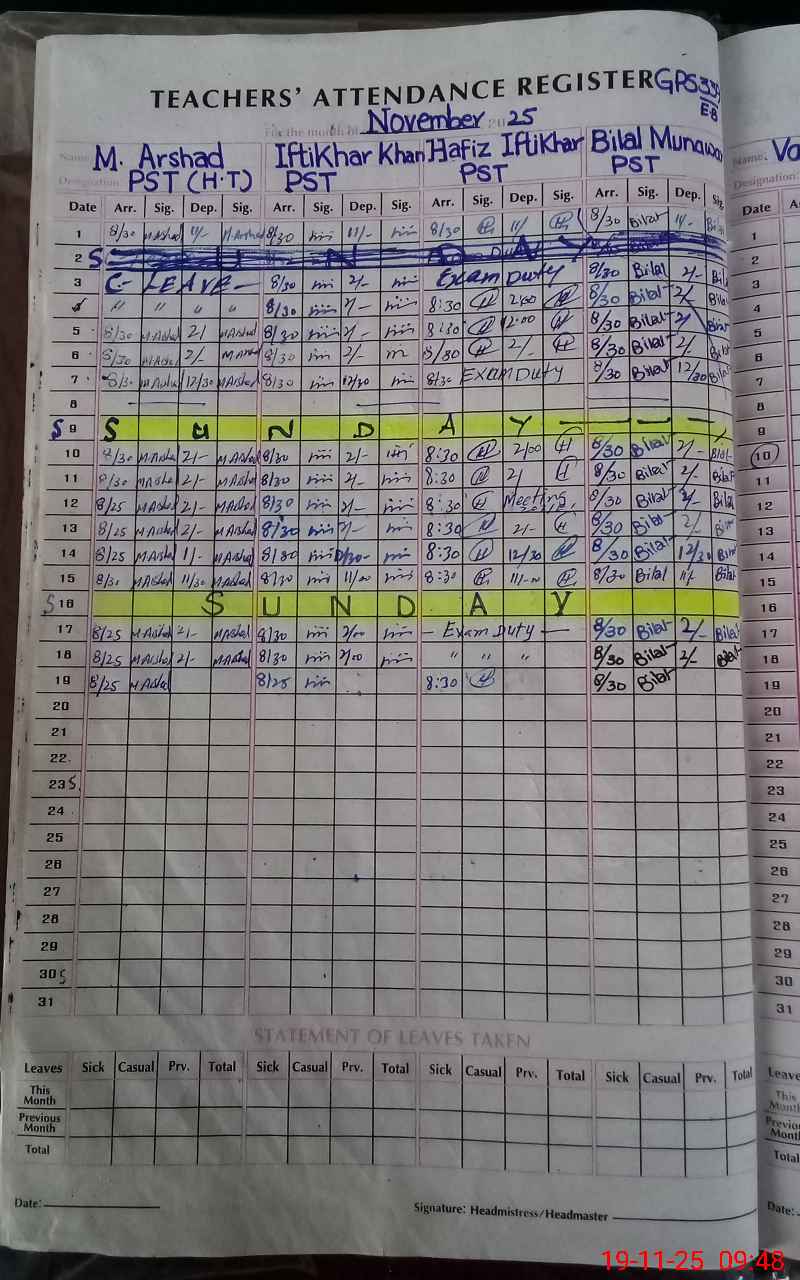 TEACHERS' ATTENDANCE REGISTER GPS 339
E.B
For the month of November 2025
Name M. Arshad Iftikhar Khan Hafiz Iftikhar Bilal Munawar Name.
Designation PST (H.T) PST PST PST Designation:
Date Arr. Sig. Dep. Sig. Arr. Sig. Dep. Sig. Arr. Sig. Dep. Sig. Arr. Sig. Dep. Sig. Date
1 8/30 M Arshad 11/- M Arshad 8/30 11/- 8/30 11/ 8/30 Bilal 11/- Bilal 1
2 S U N D A Y
3 C- LEAVE - 8/30 2/- Exam Duty 8/30 Bilal 2/- Bilal 3
4 " " " " 8/30 2/- 8:30 2:00 8/30 Bilal 2/- Bilal 4
5 8/30 M Arshad 2/ M Arshad 8/30 2/- 8:30 12:00 8/30 Bilal 2/ Bilal 5
6 8/30 M Arshad 2/- M Arsh 8/30 2/- 8/30 2/- 8/30 Bilal 2/- Bilal 6
7 8/30 M Arshad 12/30 M Arshad 8/30 12/30 8/30 Exam Duty 8/30 Bilal 12/30 Bilal 7
8 8
S 9 S U N D A Y 9
10 8/30 M Arshad 2/- M Arshad 8/30 2/- 8:30 2/00 8/30 Bilal 2/- Bilal 10
11 8/30 M Arshad 2/- M Arshad 8/30 2/- 8:30 2/ 8/30 Bilal 2/- Bilal 11
12 8/25 M Arshad 2/- M Arshad 8/30 2/- 8:30 Meeting 8/30 Bilal 2/- Bilal 12
13 8/25 M Arshad 2/- M Arshad 8/30 2/- 8:30 2/- 8/30 Bilal 2/- Bilal 13
14 8/25 M Arshad 1/- M Arshad 8/30 12/30 8:30 12/30 8/30 Bilal 12/30 Bilal 14
15 8/30 M Arshad 11/30 M Arshad 8/30 11/00 8:30 11/-- 8/30 Bilal 11/ Bilal 15
S 16 S U N D A Y 16
17 8/25 M Arshad 2/- M Arshad 8/30 2/00 - Exam Duty - 8/30 Bilal 2/- Bilal 17
18 8/25 M Arshad 2/- M Arshad 8/30 2/00 " " " 8/30 Bilal 2/- Bilal 18
19 8/25 M Arshad 8/25 8:30 8/30 Bilal 19
20 20
21 21
22 22
23 S 23
24 24
25 25
26 26
27 27
28 28
29 29
30 S 30
31 31
STATEMENT OF LEAVES TAKEN
Leaves Sick Casual Prv. Total Sick Casual Prv. Total Sick Casual Prv. Total Sick Casual Prv. Total Leave
This Month This
Previous Month
Total Total
Date: Signature: Headmistress/Headmaster Date:
19-11-25 09:48